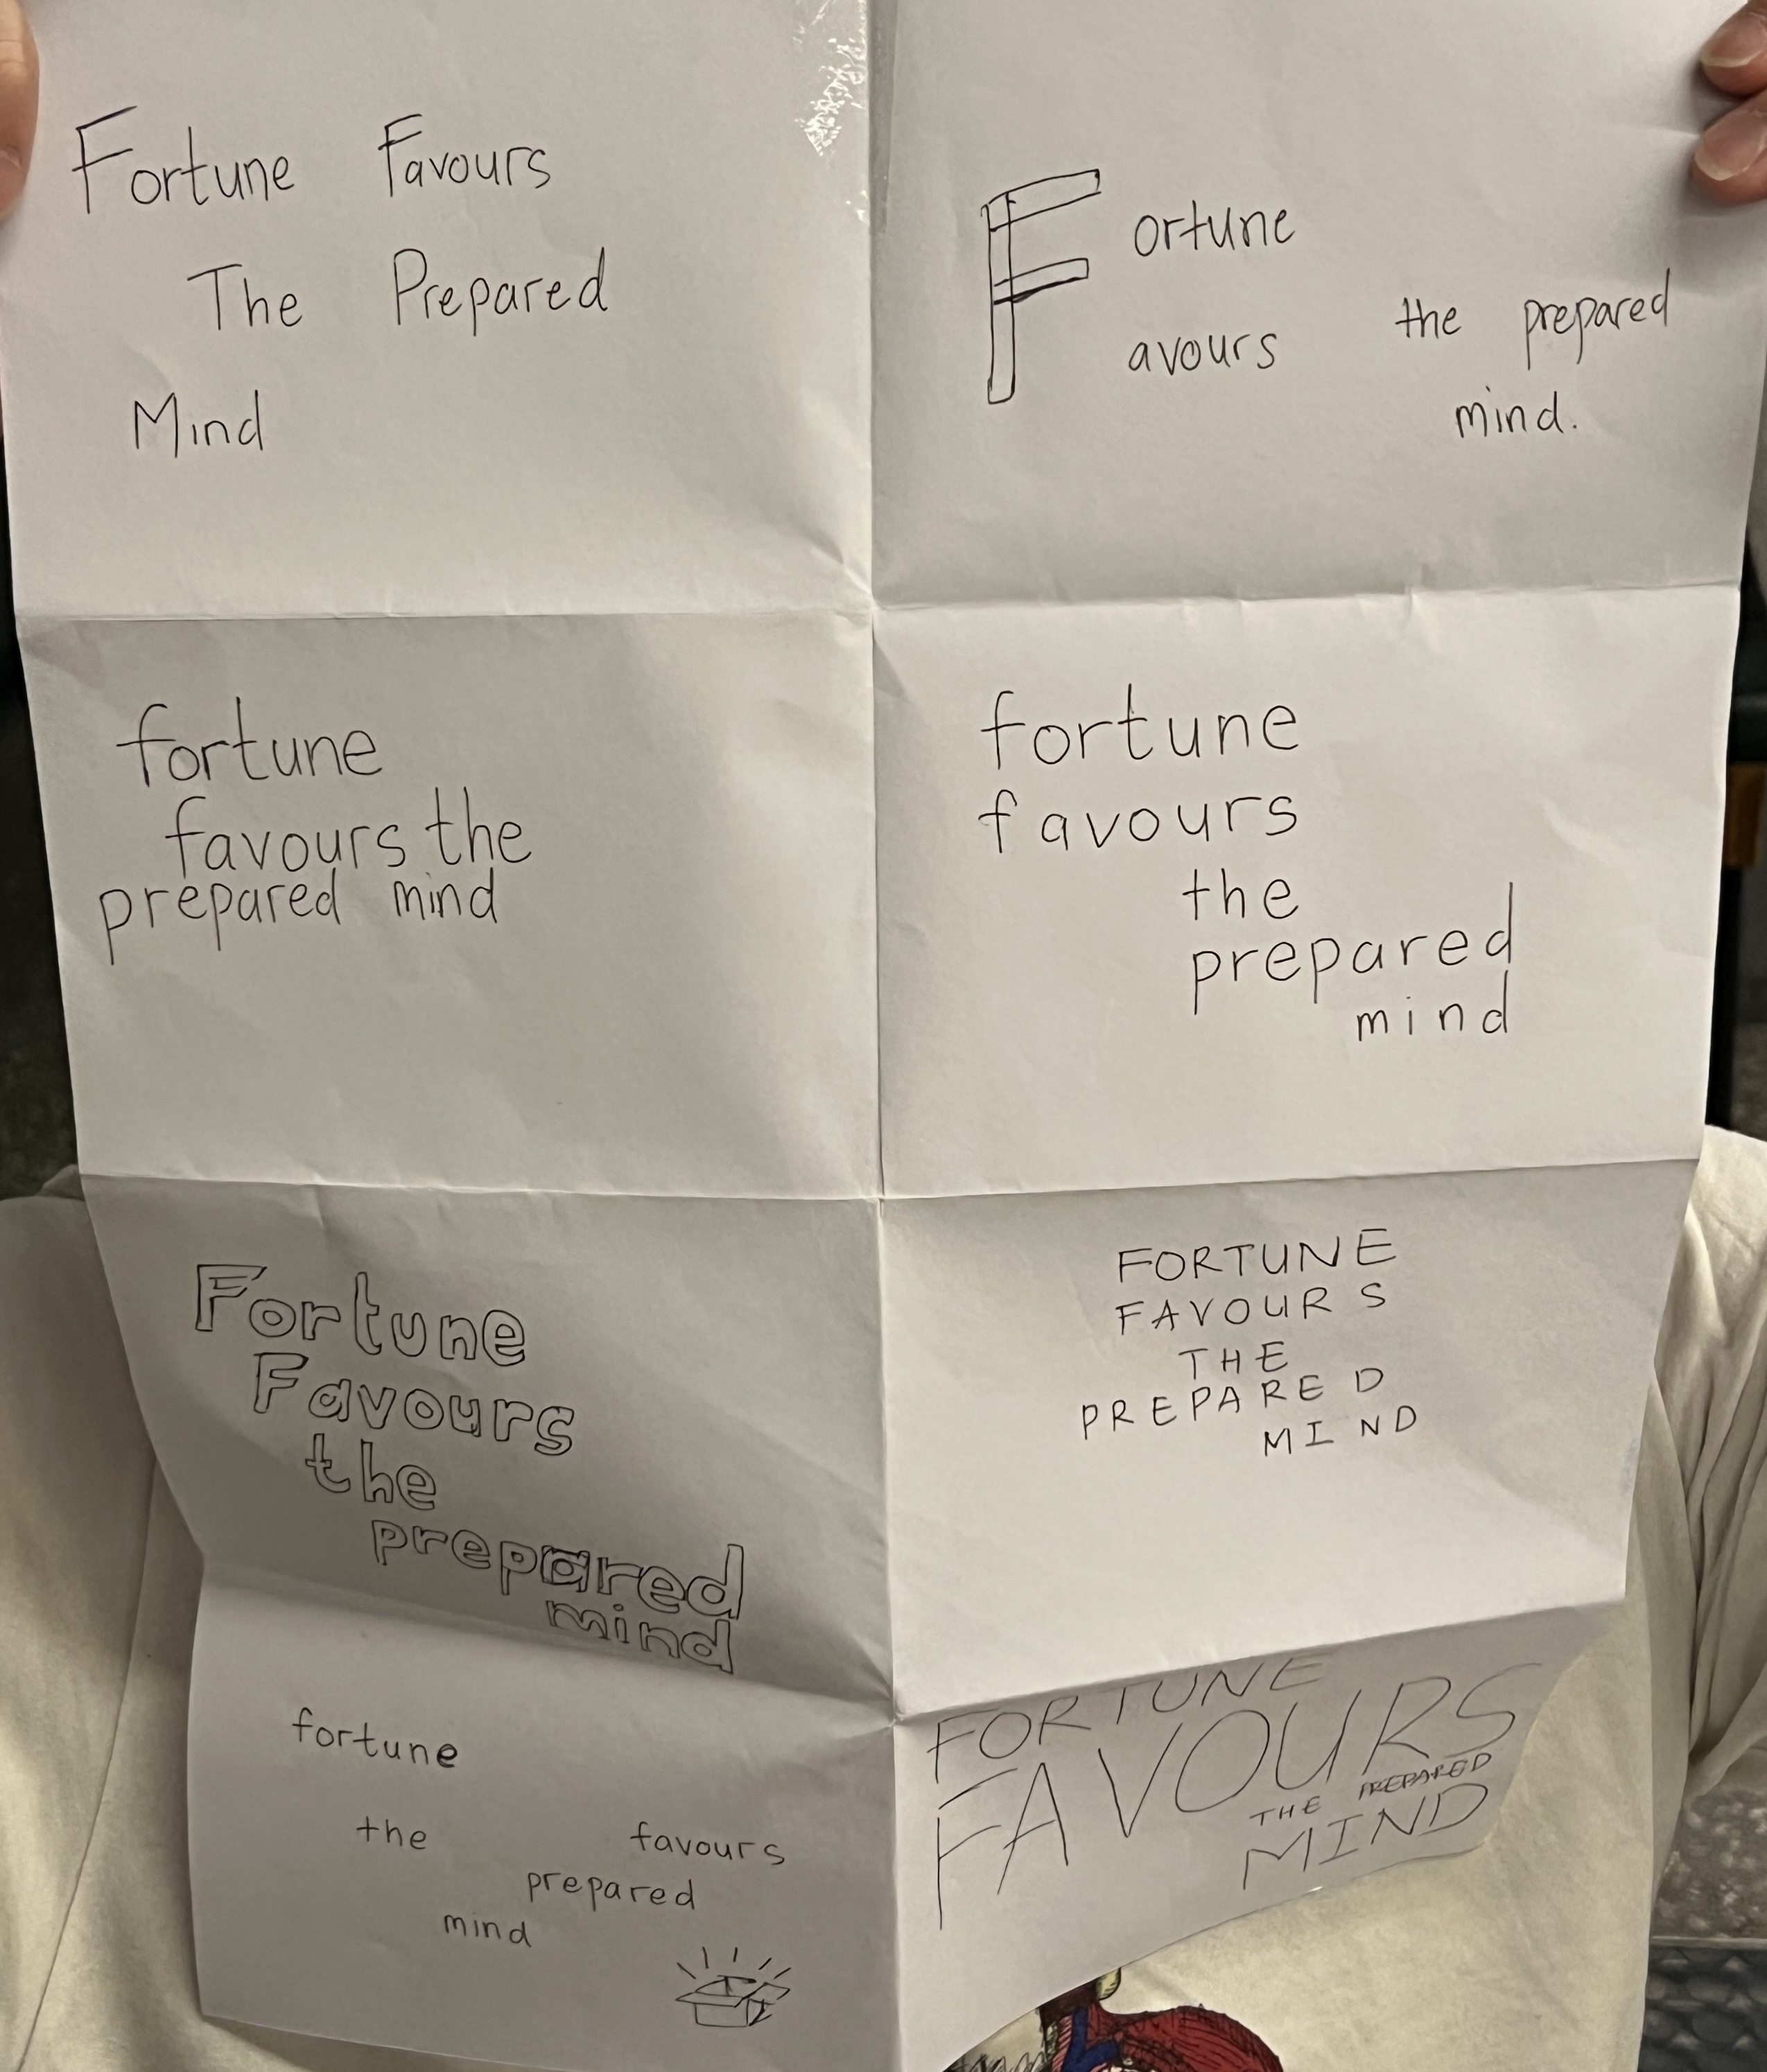 Fortune Favours
The Prepared
Mind
Fortune
avours
the prepared
mind.
fortune
favours the
prepared mind
fortune
favours
the
prepared
mind
Fortune
Favours
the
prepared
mind
FORTUNE
FAVOURS
THE
PREPARED
MIND
fortune
the favours
prepared
mind
FORTUNE
FAVOURS
THE PREPARED
MIND